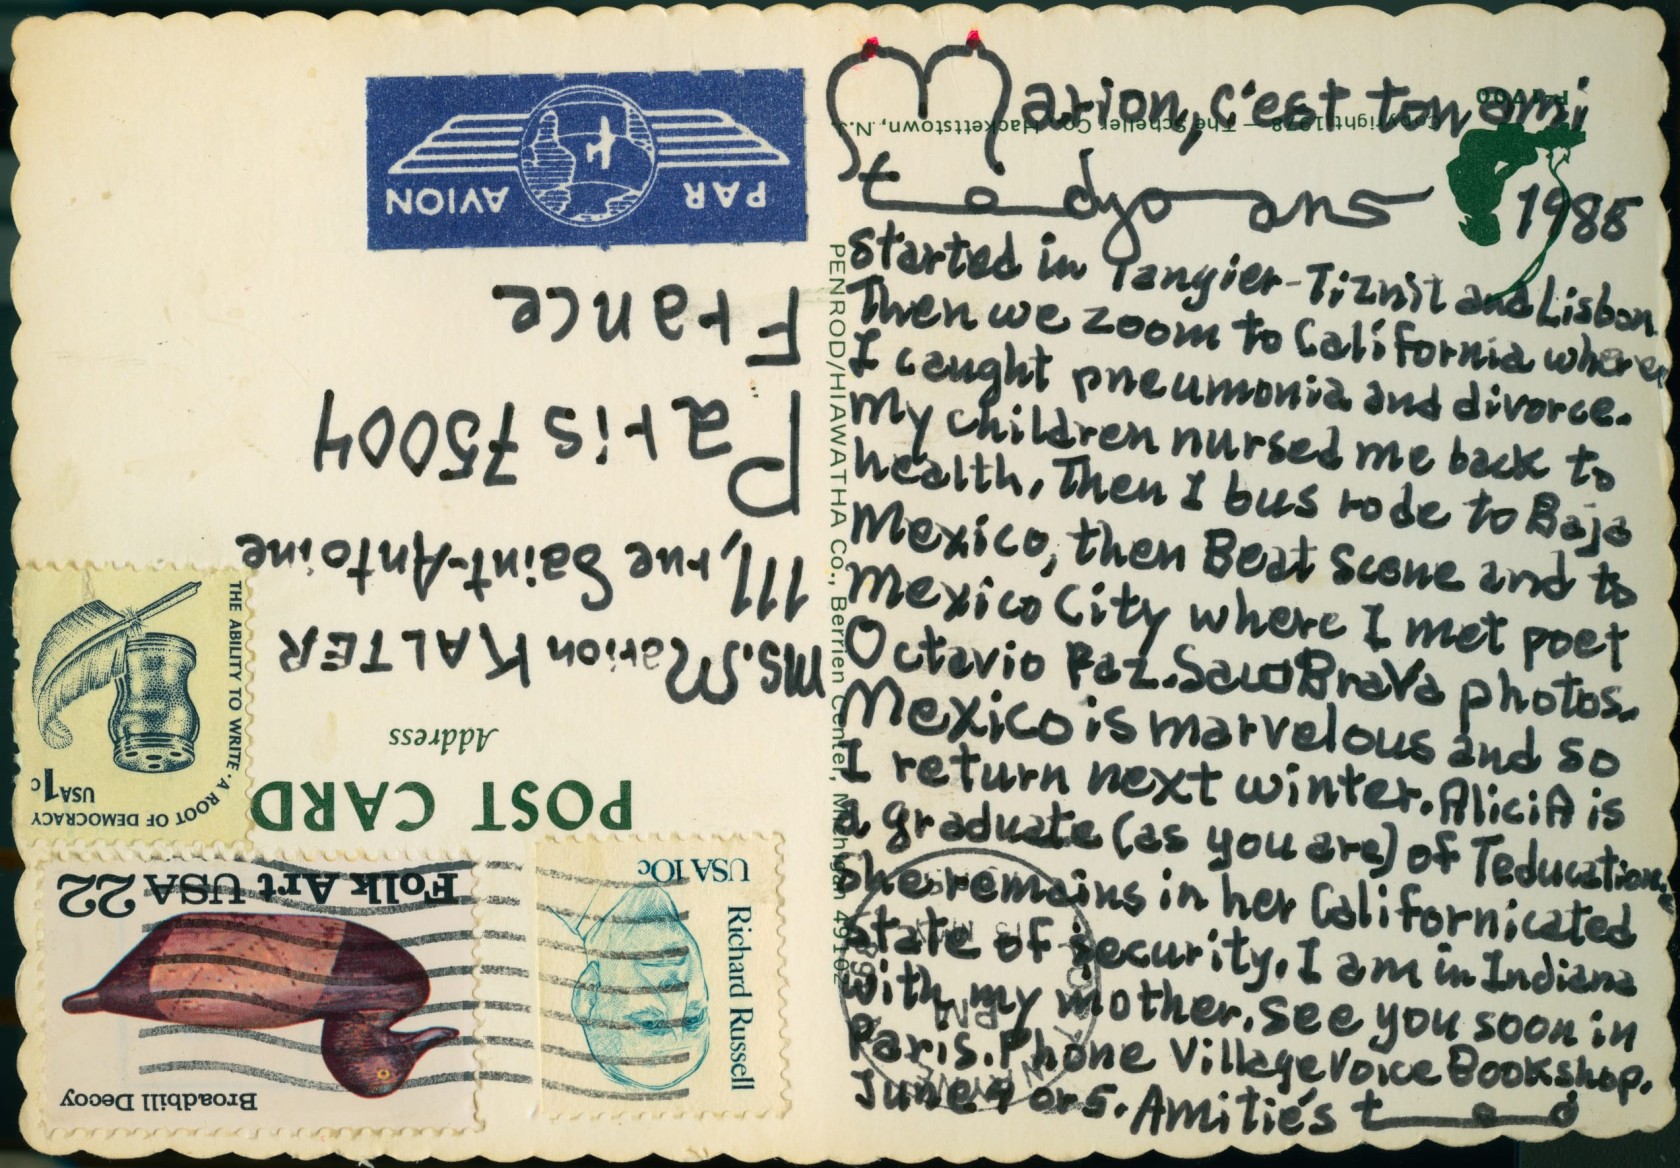 Marion, c'est ton ami
ted joans 1985
started in Tangier-Tiznit and Lisbon
Then we zoom to California where
I caught pneumonia and divorce.
My children nursed me back to
health. Then I bus rode to Baja
Mexico, then Beat Scene and to
Mexico City where I met poet
Octavio Paz. Saw BraVa photos.
Mexico is marvelous and so
I return next winter. AliciA is
a graduate (as you are) of Teducation.
She remains in her Californicated
state of security. I am in Indiana
with my mother. See you soon in
Paris. Phone Village Voice Bookshop.
June 4 or 5. Amitiés ted
Copyright 1978 — The Scheller Co., Hackettstown, N.J.
PENROD/HIAWATHA Co., Berrien Center, Michigan 49102
POST CARD
Address
Ms. Marion KALTER
111, rue Saint-Antoine
Paris 75004
France
PAR AVION
THE ABILITY TO WRITE · A ROOT OF DEMOCRACY
USA 1c
Folk Art USA 22
Broadbill Decoy
USA 10c
Richard Russell
PM